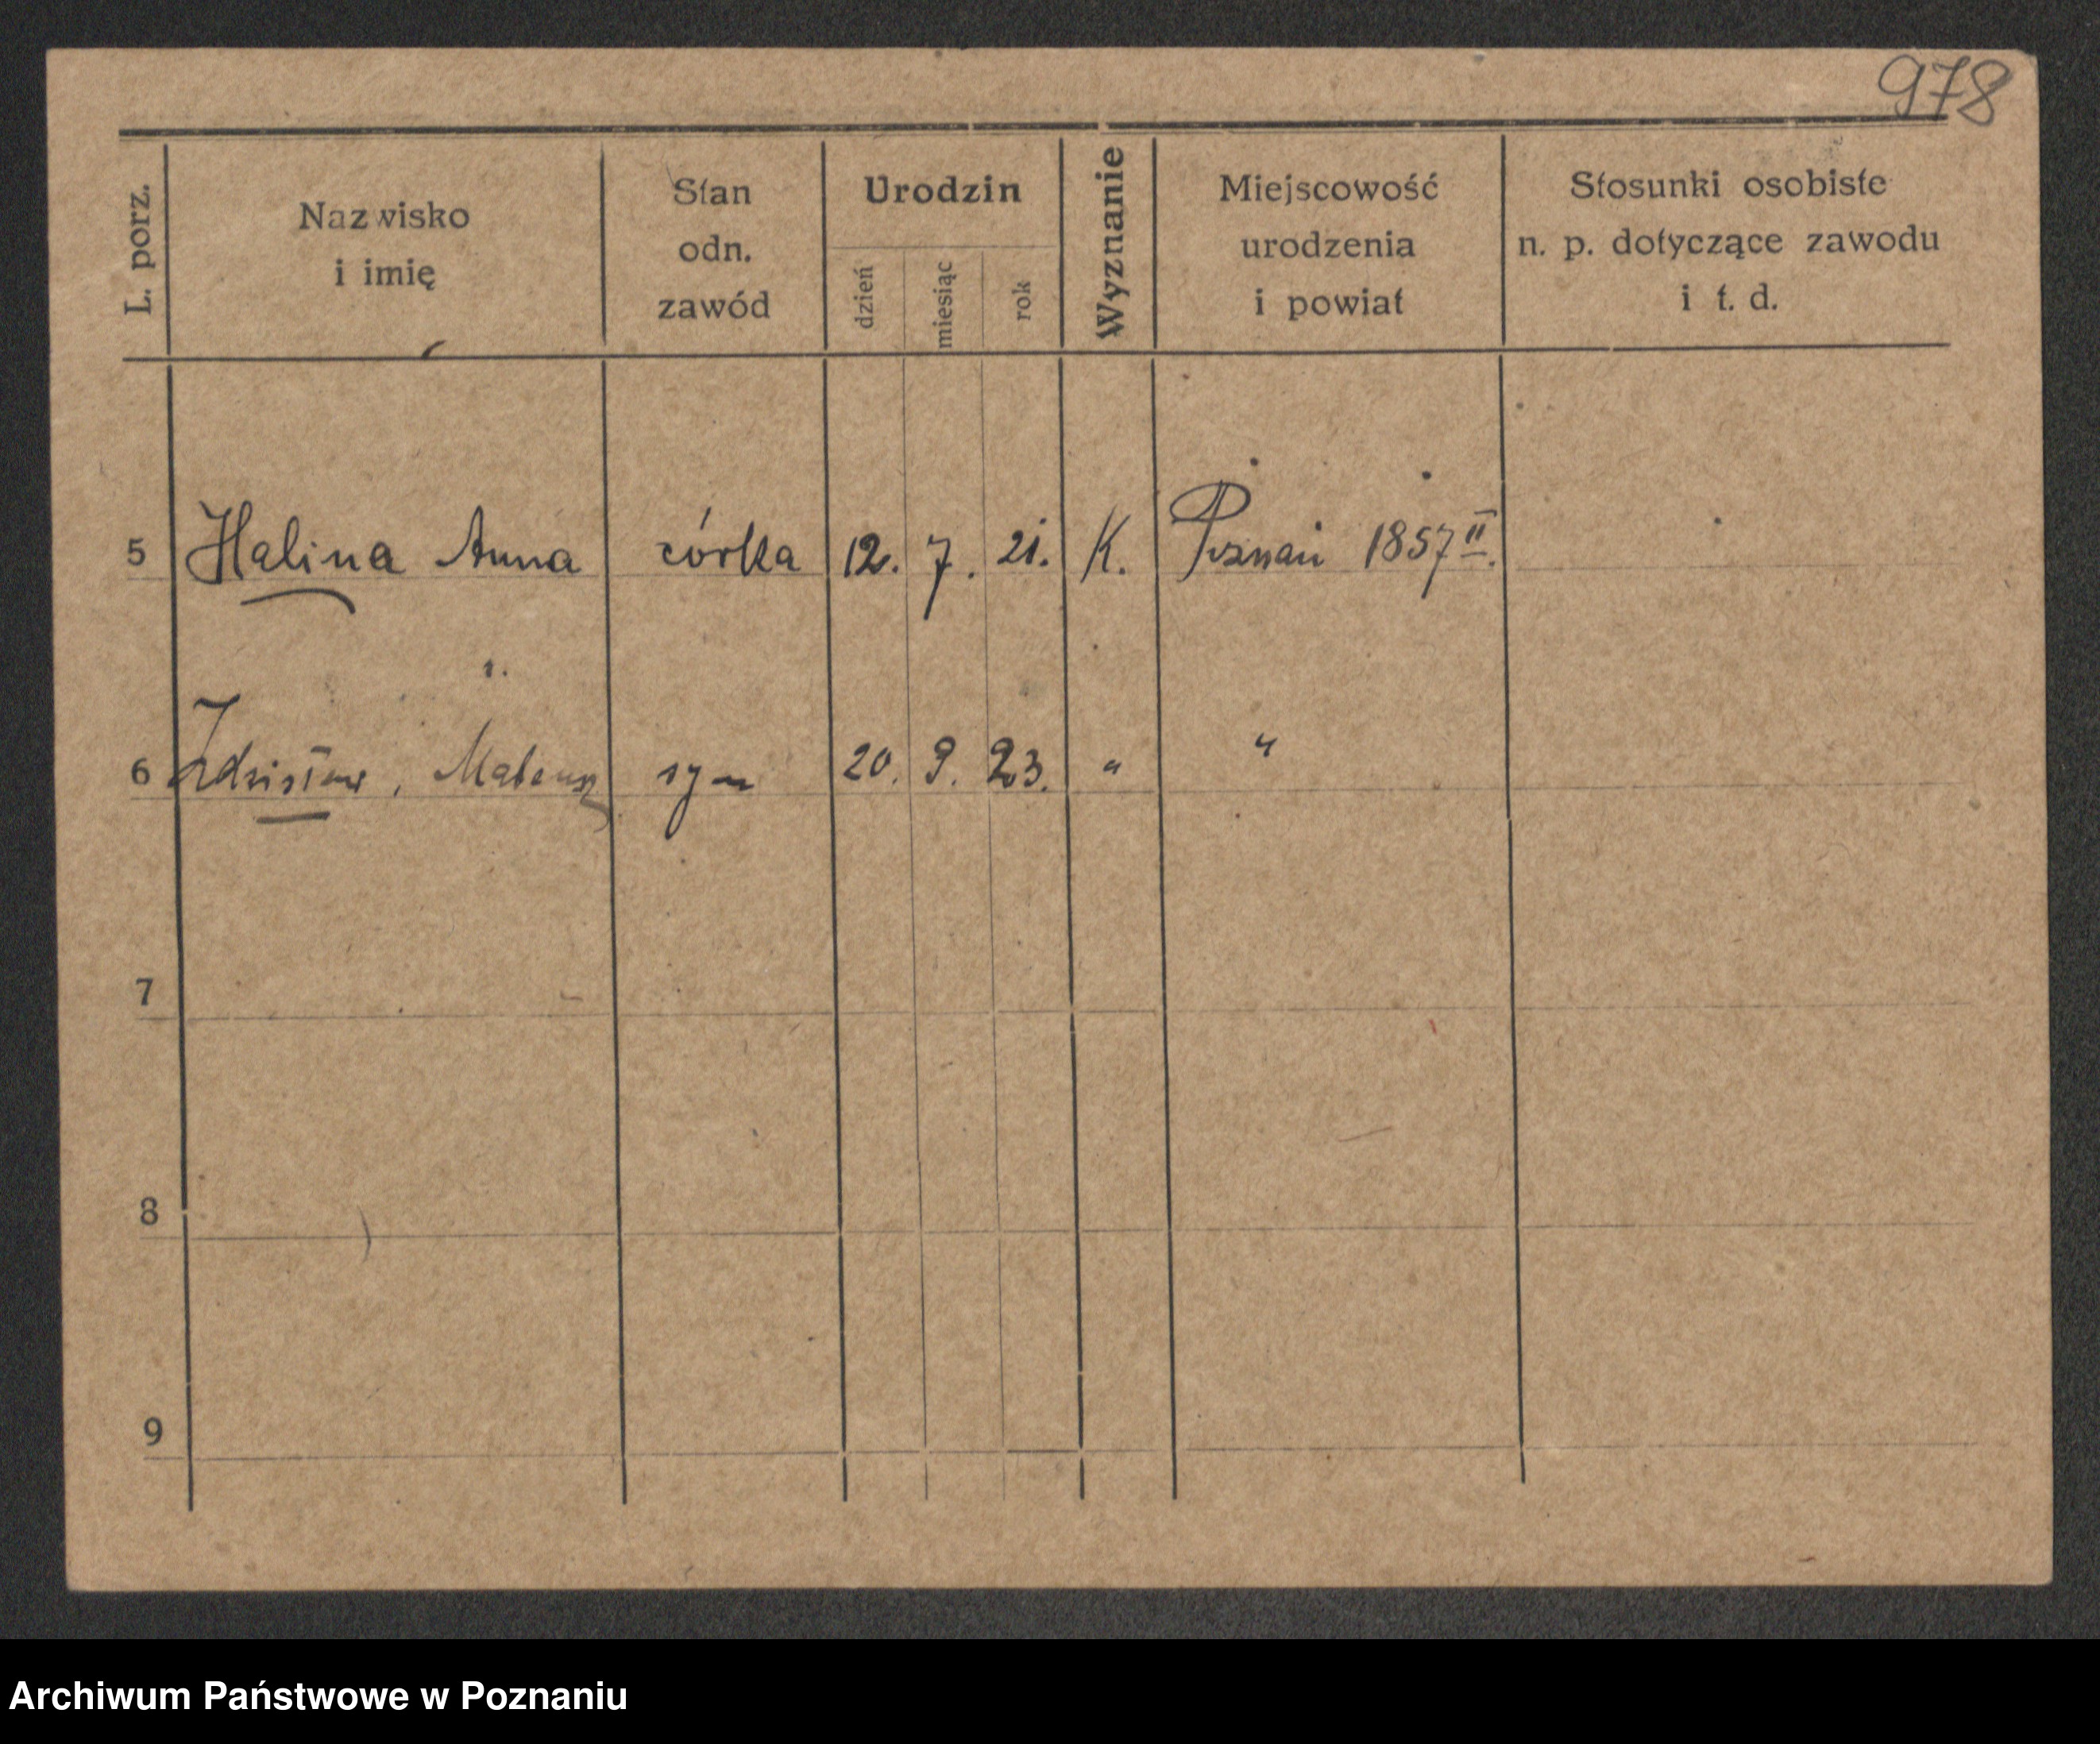 978
L. porz.
Nazwisko
i imię
Stan
odn.
zawód
Urodzin
dzień
miesiąc
rok
Wyznanie
Miejscowość
urodzenia
i powiat
Stosunki osobiste
n. p. dotyczące zawodu
i t. d.
5 Halina Anna córka 12. 7. 21. K. Poznań 1857 II.
6 Zdzisław, Mateusz syn 20. 9. 23. " "
7
8
9
Archiwum Państwowe w Poznaniu